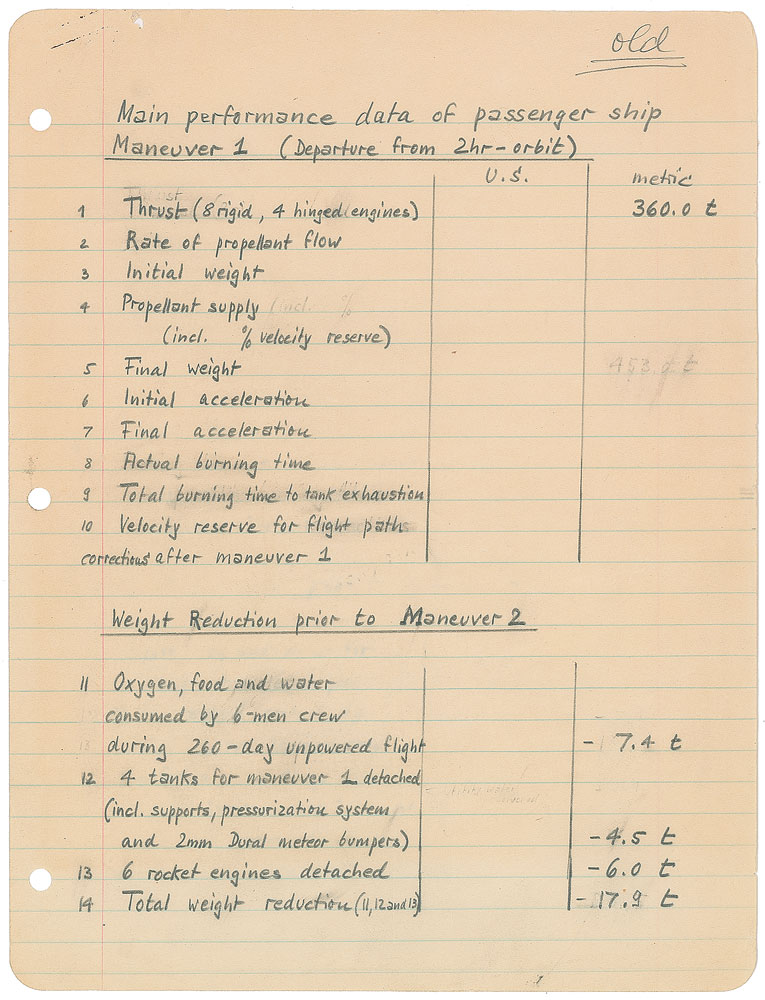 old
Main performance data of passenger ship
Maneuver 1 (Departure from 2hr-orbit)
U.S. metric
1 Thrust (8 rigid, 4 hinged engines) 360.0 t
2 Rate of propellant flow
3 Initial weight
4 Propellant supply (incl. %
(incl. % velocity reserve)
5 Final weight
6 Initial acceleration
7 Final acceleration
8 Actual burning time
9 Total burning time to tank exhaustion
10 Velocity reserve for flight path
corrections after maneuver 1
Weight Reduction prior to Maneuver 2
11 Oxygen, food and water
consumed by 6-men crew
during 260-day unpowered flight - 7.4 t
12 4 tanks for maneuver 1 detached
(incl. supports, pressurization system
and 2mm Dural meteor bumpers) -4.5 t
13 6 rocket engines detached -6.0 t
14 Total weight reduction (11, 12 and 13) -17.9 t